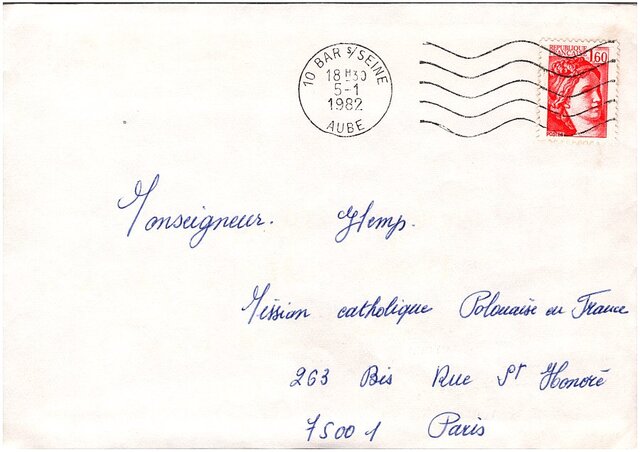 10 BAR S/SEINE
18H30
5-1
1982
AUBE
REPUBLIQUE
FRANÇAISE
1,60
Monseigneur. Glemp.
Mission catholique Polonaise en France
263 Bis Rue St Honoré
75001 Paris